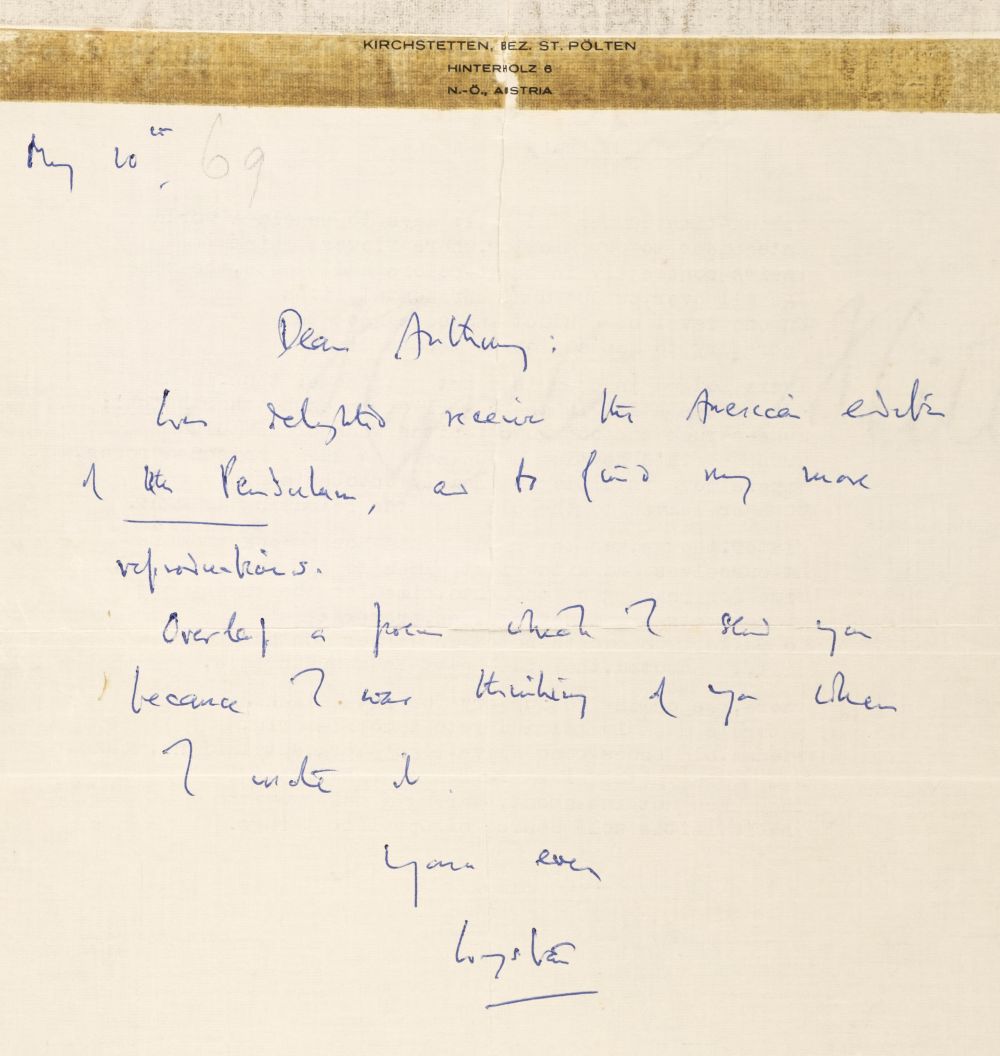 KIRCHSTETTEN, BEZ. ST. PÖLTEN
HINTERHOLZ 6
N.-Ö., AUSTRIA
May 20th. 69
Dear Anthony:
Was delighted receive the American edition
of the Pendulum, and to find many more
reproductions.
Overleaf a poem which I send you
because I was thinking of you when
I wrote it.
Yours ever
Wystan